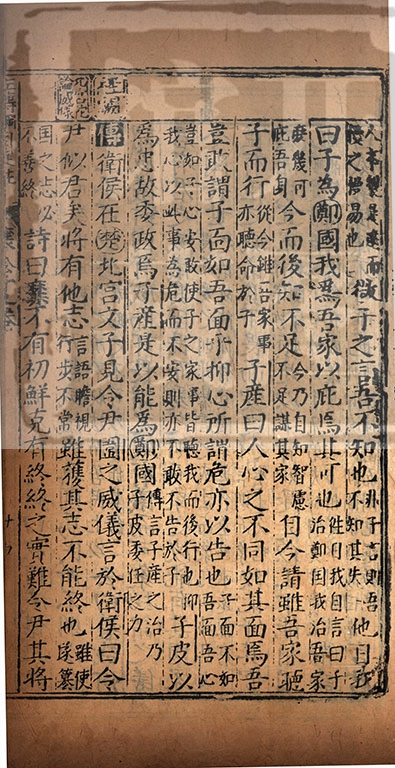 慢之慢易也微子之言吾不知也非子言則吾不知其失他日我
曰子為鄭國我為吾家以庇焉其可也往日我自言曰子治鄭國我治吾家
庶幾可庇吾身今而後知不足今乃自知智慮不足謀其家自今請雖吾家聽
子而行從今雖吾家事亦聽命於子子產曰人心之不同如其面焉吾
豈敢謂子面如吾面乎抑心所謂危亦以告也子面不如吾面吾心
豈如子心安敢使子之家事皆聽我而後行也抑我心以此事為危而不安則亦不敢不告於子子皮以
為忠故委政焉子產是以能為鄭國傳言子產之治乃子皮委任之力
傳衛侯在楚北宮文子見令尹圍之威儀言於衛侯曰令
尹似君矣將有他志言語瞻視行步不常雖獲其志不能終也雖使遂篡
國之志必不善終詩曰靡不有初鮮克有終終之實難令尹其將